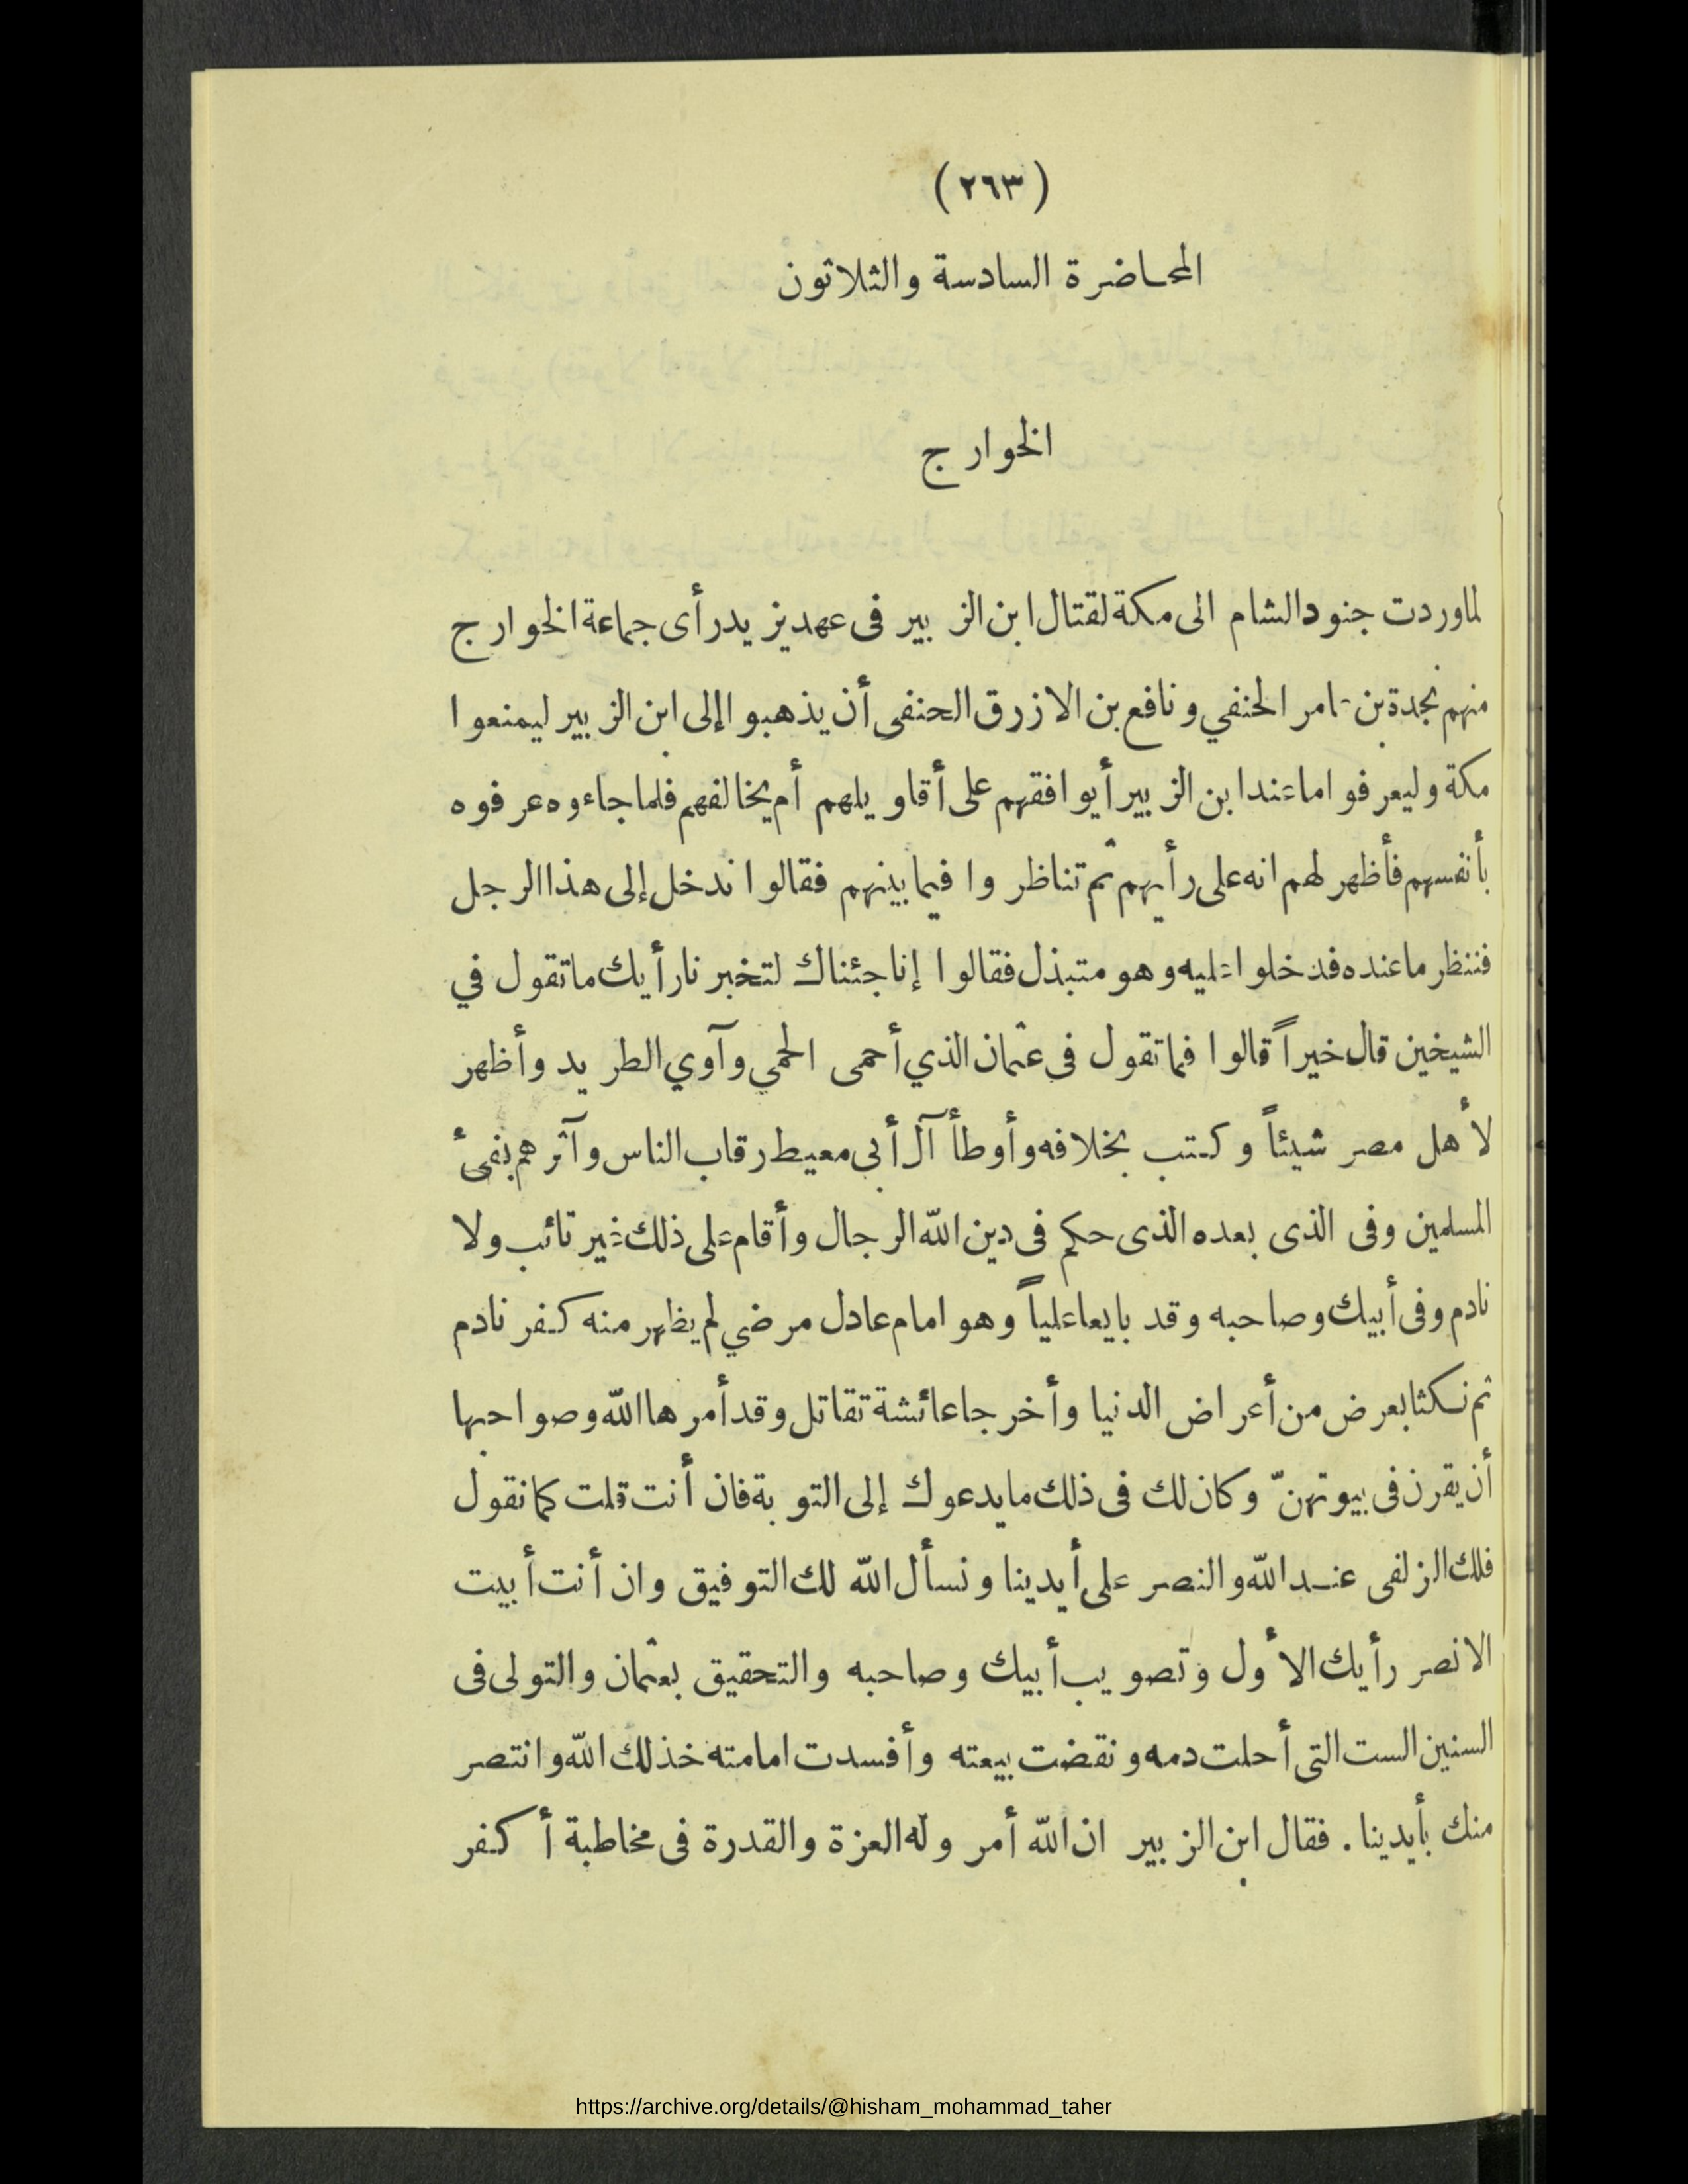 (٢٦٣)
المحاضرة السادسة والثلاثون
الخوارج
لما وردت جنود الشام الى مكة لقتال ابن الزبير فى عهد يزيد رأى جماعة الخوارج
منهم نجدة بن عامر الحنفي ونافع بن الازرق الحنفى أن يذهبوا إلى ابن الزبير ليمنعوا
مكة وليعرفوا ما عند ابن الزبير أيوافقهم على أقاويلهم أم يخالفهم فلما جاءوه عرفوه
بأنفسهم فأظهر لهم انه على رأيهم ثم تناظروا فيما بينهم فقالوا ندخل إلى هذا الرجل
فننظر ما عنده فدخلوا عليه وهو متبذل فقالوا إنا جئناك لتخبرنا رأيك ما تقول في
الشيخين قال خيراً قالوا فما تقول فى عثمان الذي أحمى الحمي وآوي الطريد وأظهر
لأهل مصر شيئاً وكتب بخلافه وأوطأ آل أبى معيط رقاب الناس وآثرهم بفىء
المسلمين وفى الذى بعده الذى حكم فى دين الله الرجال وأقام على ذلك غير تائب ولا
نادم وفى أبيك وصاحبه وقد بايعا علياً وهو امام عادل مرضي لم يظهر منه كفر نادم
ثم نكثا بعرض من أعراض الدنيا وأخرجا عائشة تقاتل وقد أمرها الله وصواحبها
أن يقرن فى بيوتهنّ وكان لك فى ذلك ما يدعوك إلى التوبة فان أنت قلت كما نقول
فلك الزلفى عند الله والنصر على أيدينا ونسأل الله لك التوفيق وان أنت أبيت
الا نصر رأيك الأول وتصويب أبيك وصاحبه والتحقيق بعثمان والتولى فى
السنين الست التى أحلت دمه ونقضت بيعته وأفسدت امامته خذلك الله وانتصر
منك بأيدينا . فقال ابن الزبير ان الله أمر وله العزة والقدرة فى مخاطبة أكفر
https://archive.org/details/@hisham_mohammad_taher